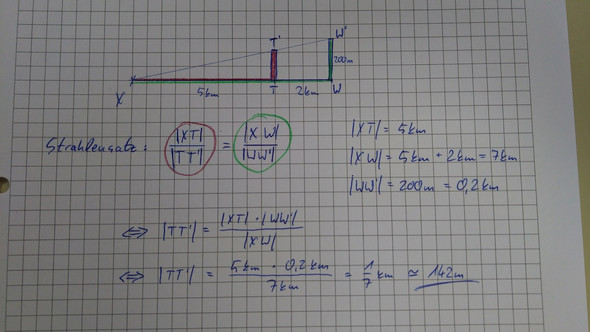 W'
T'
200m
X 5km T 2km W
Strahlensatz: |XT| / |TT'| = |XW| / |WW'|
|XT| = 5km
|XW| = 5km + 2km = 7km
|WW'| = 200m = 0,2km
⇔ |TT'| = |XT| · |WW'| / |XW|
⇔ |TT'| = 5km · 0,2km / 7km = 1/7 km ≃ 142m